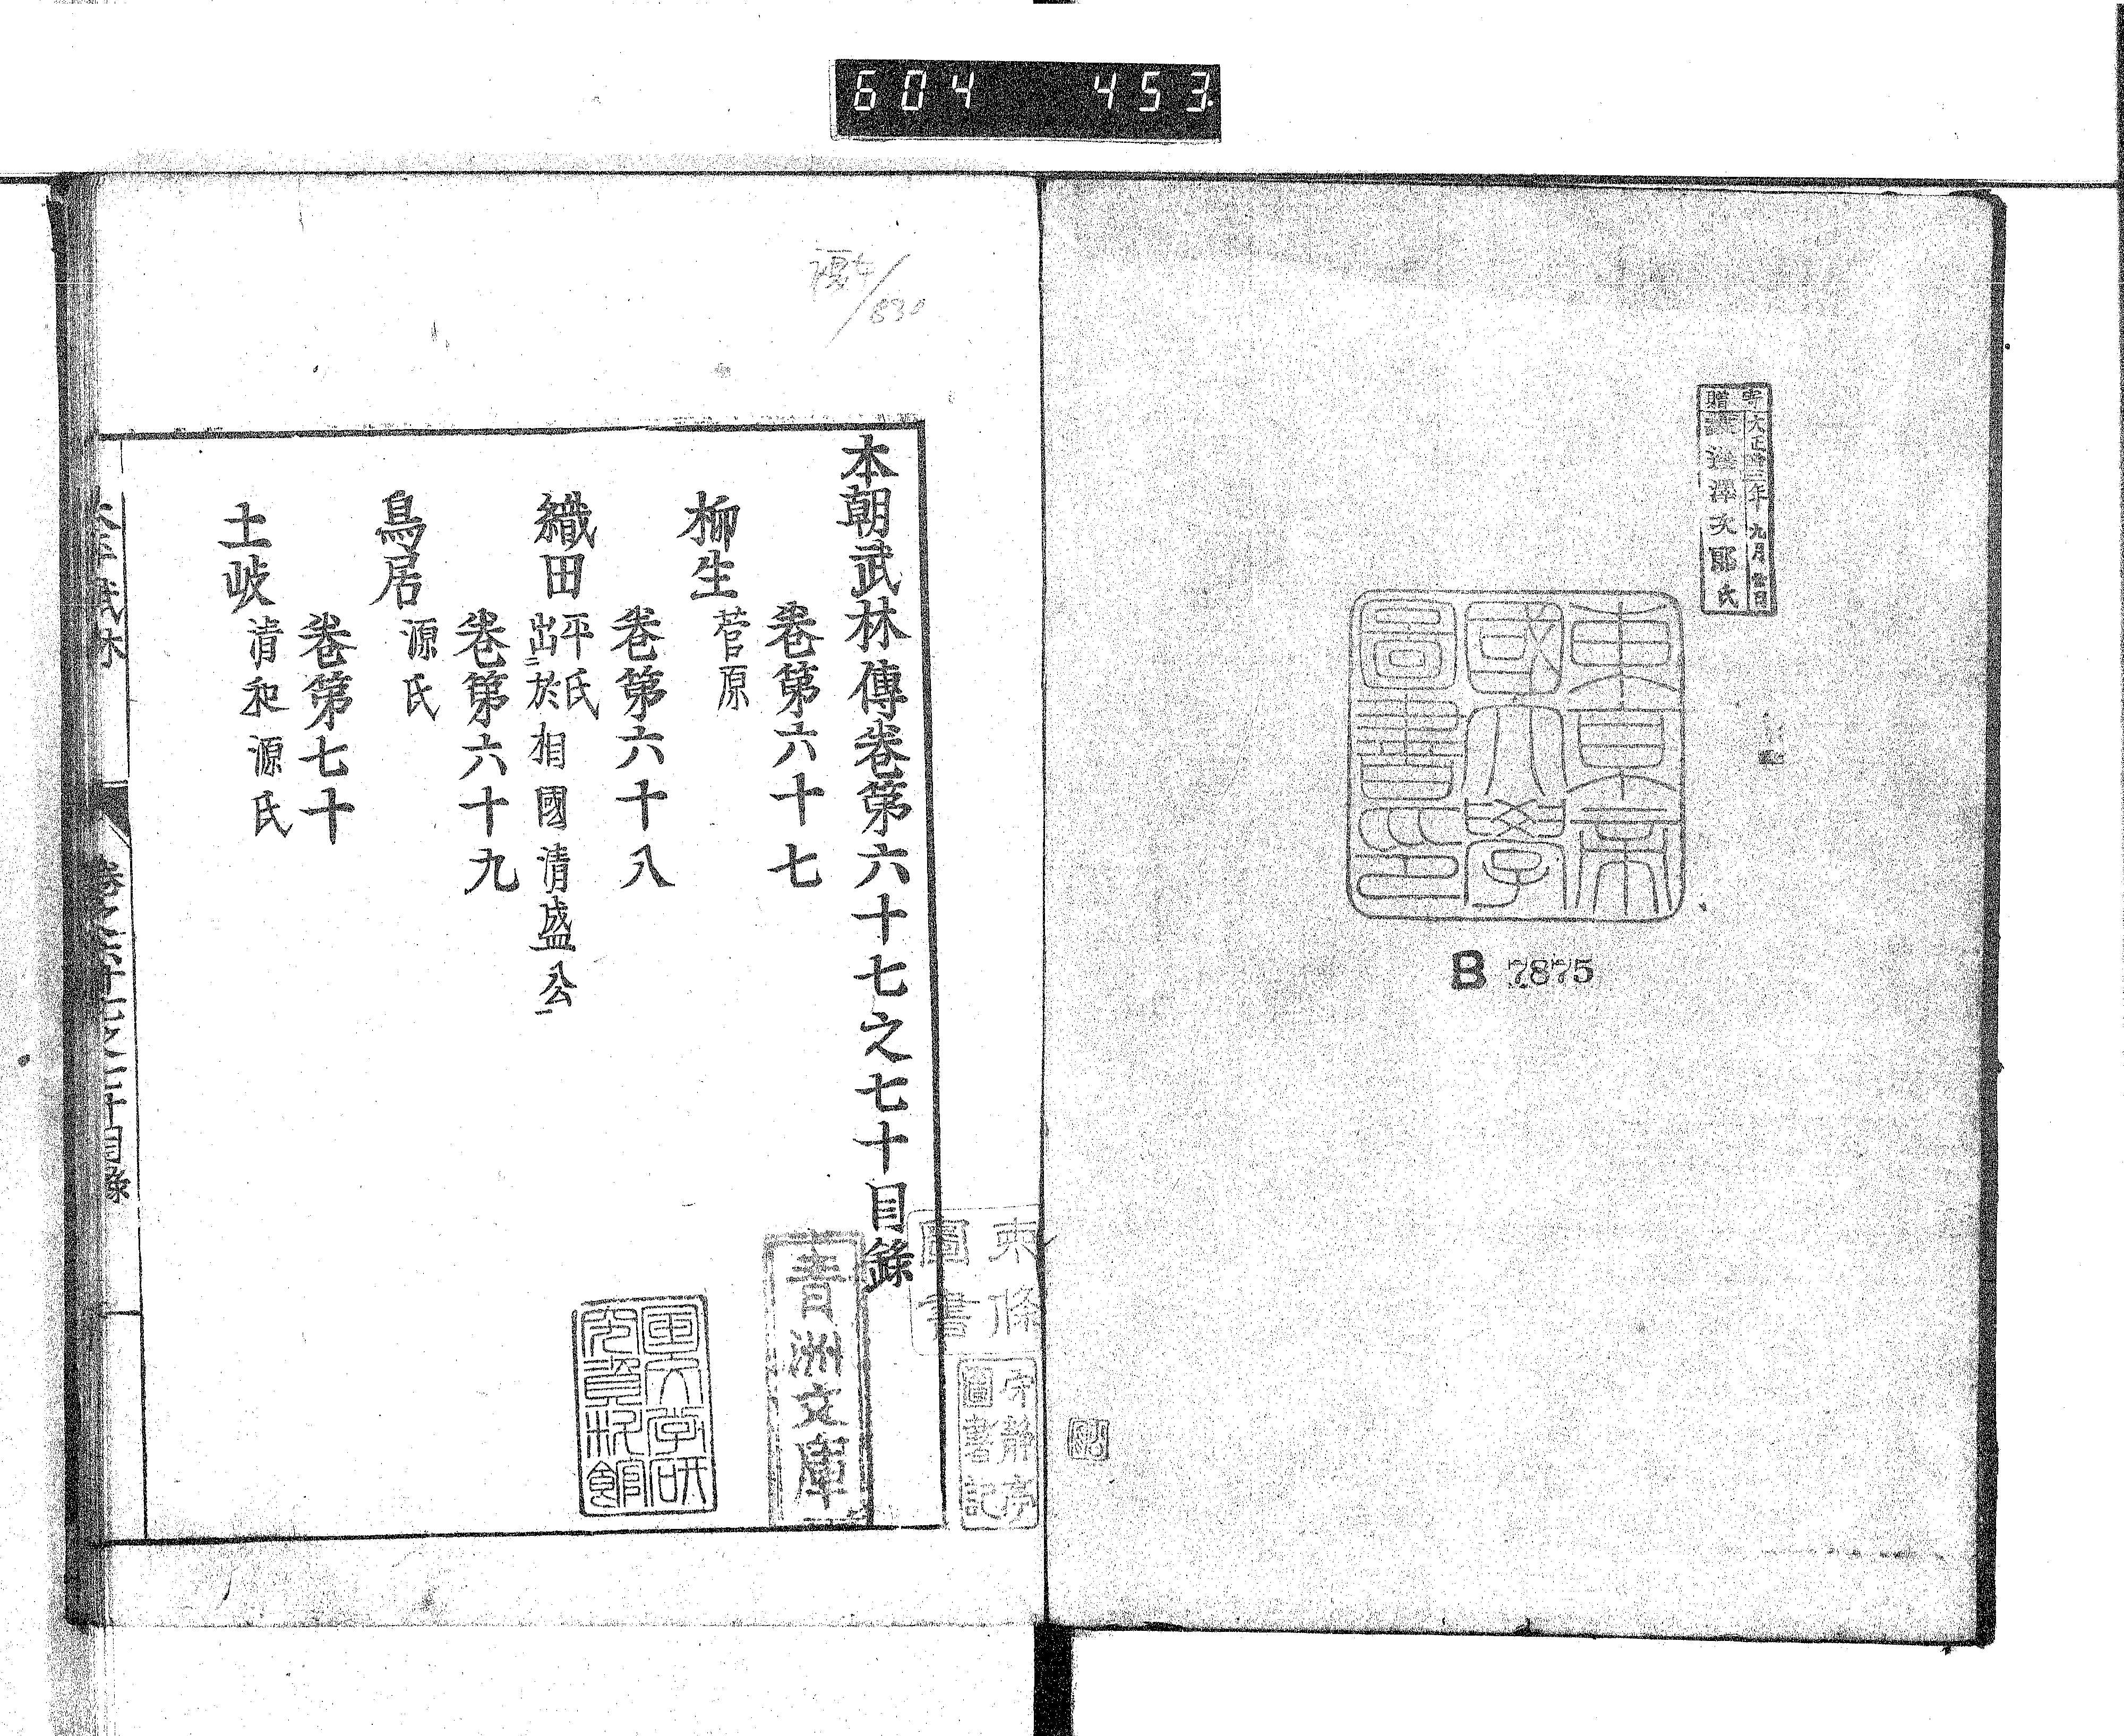 604 453
寄贈
大正十三年九月廿日
渋澤次郎氏
東京帝
國大學
圖書印
B 7875
830
本朝武林傳卷第六十七之七十目錄
卷第六十七
柳生 菅原
卷第六十八
織田 平氏
出於相國清盛公
卷第六十九
鳥居 源氏
卷第七十
土岐 清和源氏
卷之六十七之七十目錄
東條
圖書
帝靜亭
圖書記
青洲文庫
国文学研
究資料館